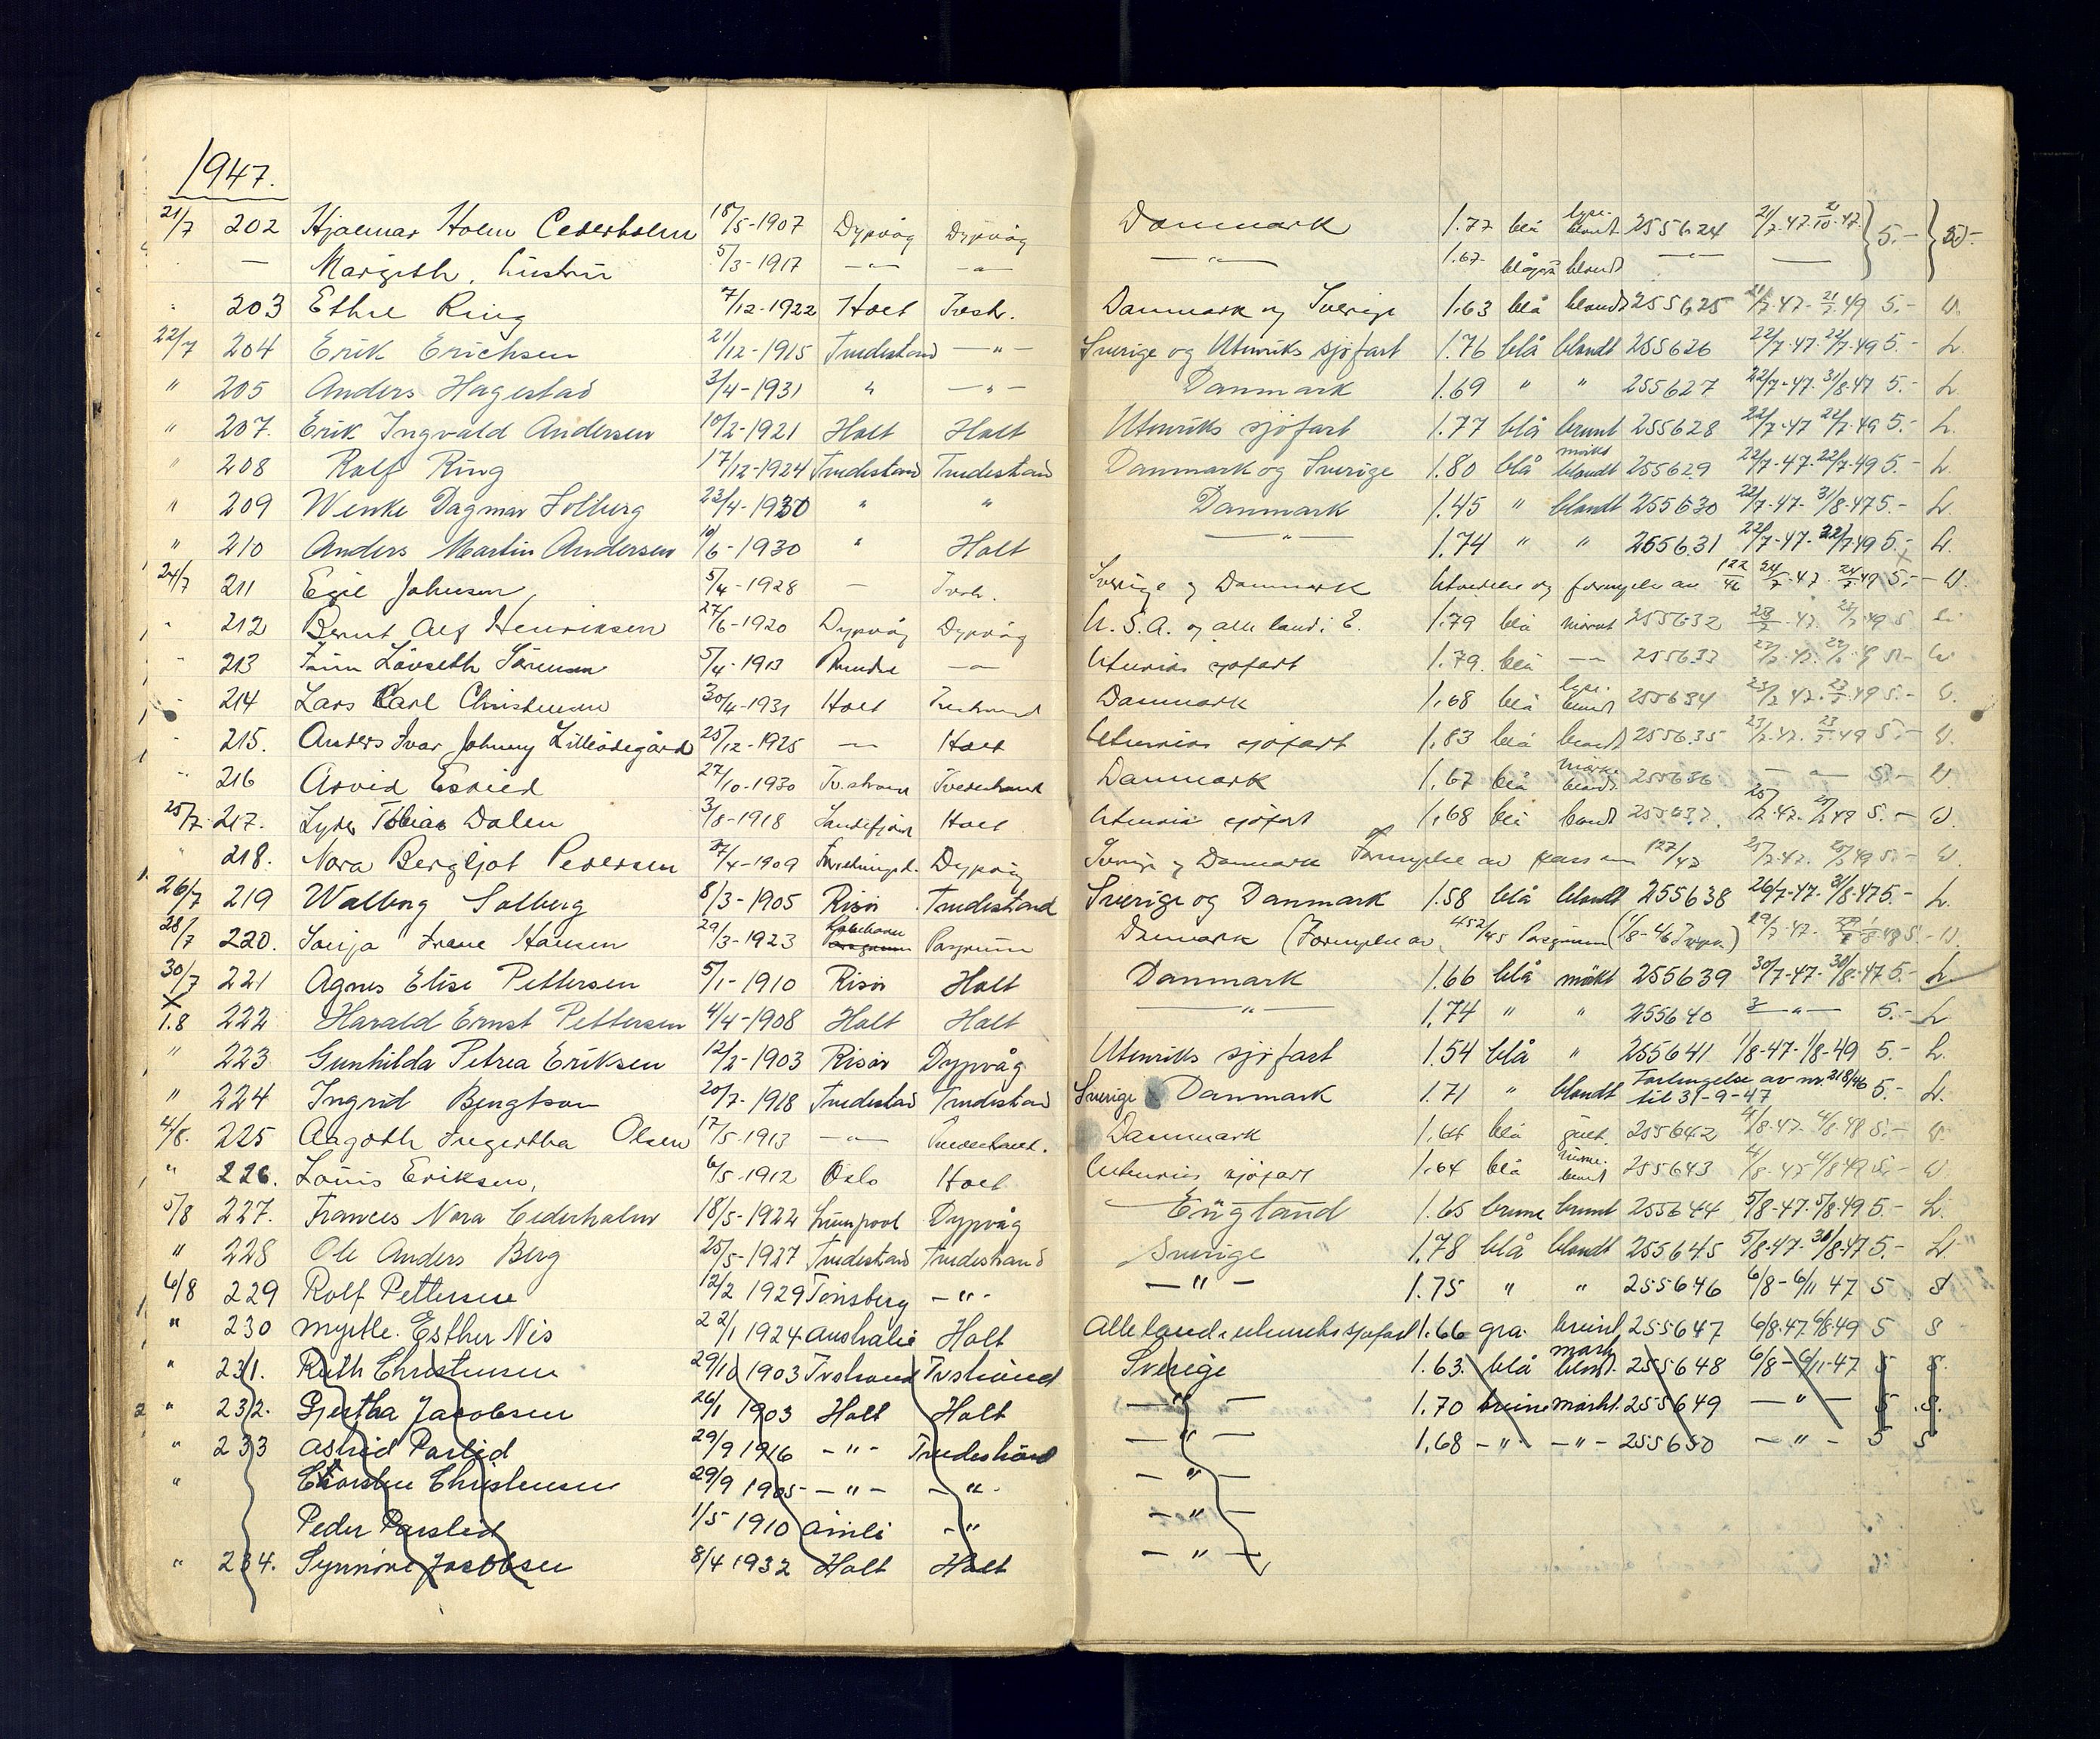 1947.
21/7 202 Hjalmar Holm Cederholm 18/5-1907 Dypvåg Dypvåg Danmark 1.77 blå lyse- blondt 255624 21/7.47. 21/10.47. 5.-
— Margith, hustru 5/3-1917 —"— —"— —"— 1.67 blågrå blondt —"— ——
" 203 Ethel Ring 7/12-1922 Holt Tvestr. Danmark og Sverige 1.63 blå blondt 255625 21/7-47- 21/7.49 5.- W.
22/7 204 Erik Erichsen 21/12-1915 Tvedestrand —"— Sverige og Utenriks sjøfart 1.76 blå blondt 255626 22/7-47-22/7-49 5.- L.
" 205 Anders Hagestad 3/4-1931 " —"— Danmark 1.69 " " 255627 22/7-47. 31/8.47 5.- L.
" 207. Erik Ingvald Andersen 10/2-1921 Holt Holt Utenriks sjøfart 1.77 blå brunt 255628 22/7-47 22/7-49 5.- L.
" 208 Rolf Ring 17/12-1924 Tvedestrand Tvedestrand Danmark og Sverige 1.80 blå mørkt blondt 255629 22/7-47-22/7-49 5.- L.
" 209 Wenke Dagmar Solberg 23/4-1930 " " Danmark 1.45 " blondt 255630 22/7-47- 31/8-47 5.- L.
" 210 Anders Martin Andersen /6-1930 " Holt —"— 1.74 " " 255631 22/7-47- 22/7-49 5.- L.
24/7 211 Egil Johnsen 5/4-1928 — Tvstr. Sverige og Danmark Utvidelse og fornyelse av 122/46 24/7.47. 24/7.49 5.- W.
" 212 Bernt Alf Henriksen 27/6-1920 Dypvåg Dypvåg U.S.A. og alle land i E. 1.79 blå 255632 5
" 213 Løvseth Sørensen 5/4-1913 —"— Utenriks sjøfart 1.79. blå —"— 255633 W.
" 214 Lars Karl Christensen 30/4-1931 Holt Danmark 1.68 blå lyse- blondt 255634 23/7 47. 23/7.49 5.- W.
" 215. Anders Ivar Johnny Lilleødegård 25/12-1925 — Holt Utenriks sjøfart 1.83 blå blondt 255635 23/7.47. 23/7.49 5.- W.
" 216 Arvid Eskild 27/10-1930 Tv.strand Tvedestrand Danmark 1.67 blå mørke- blondt 255636 — " — 5.- W.
25/7 217. Lyder Tobias Dalen 3/8-1918 Sandefjord Holt Utenriks sjøfart 1.68 blå blondt 255637. 25/7.47. 25/7.49 5.- W.
" 218. Nora Bergljot Pedersen 27/4-1909 Dypvåg Sverige og Danmark Fornyelse av pass nr 127/47 25/7.47. 25/7.49 5.- W.
26/7 219 Walborg Solberg 8/3-1905 Risør Tvedestrand Sverige og Danmark 1.58 blå blondt 255638 26/7-47-31/8-47 5.- L.
28/7 220. Sonja Irene Hansen 29/3-1923 Porsgrunn Porsgrunn Danmark (Fornyelse av 452/45 Porsgrunn 29/7-47- W.
30/7 221 Agnes Elise Pettersen 5/1-1910 Risør Holt Danmark 1.66 blå mørkt 255639 30/7-47-30/8-47 5.- L
1.8 222 Harald Ernst Pettersen 4/4-1908 Holt Holt —"— 1.74 " " 255640 —"— 5.- L
" 223 Gunhilda Petrea Eriksen 12/2-1903 Risør Dypvåg Utenriks sjøfart 1.54 blå " 255641 1/8-47-1/8-49 5.- L.
" 224 Ingrid Bengtson 20/7-1918 Tvedestrand Tvedestrand Sverige & Danmark 1.71 " blondt Forlengelse av nr. 318/46 til 31-9-47 5.- L.
4/8. 225 Aagoth Ingertha Olsen 17/5-1913 —"— Tvedestrand. Danmark 1.66 blå 255642 4/8-47- 4/8-48 5.- W.
" 226. Louis Eriksen, 6/5-1912 Oslo Holt Utenriks sjøfart 1.64 blå 255643 4/8-47 4/8 49 5.- W
5/8 227. Frances Nora Cederholm 18/5-1922 Liverpool Dypvåg England 1.65 brune brunt 255644 5/8-47-5/8-49 5.- L.
" 228 Ole Anders Berg 25/5-1927 Tvedestrand Tvedestrand Sverige " 1.78 blå blondt 255645 5/8-47- 31/8-47 5.- L.
6/8 229 Rolf Pettersen 12/2 1929 Tønsberg —"— —"— 1.75 " " 255646 6/8-6/11 47 5 S
" 230 Myrtle. Esther Nis 22/1 1924 Australia Holt Alle land. utenriks sjøfart 1.66 grå. brunt 255647 6/8.47 6/8-49 5 S
" 231. Ruth Christensen 29/10 1903 Tvstrand Tvstrand Sverige 1.63. blå mørk blond. 255648 6/8-6/11-47 5 S.
" 232. Gjertha Jacobsen 26/1 1903 Holt Holt —"— 1.70 brune mørkt. 255649 —"— 5 S.
" 233 Astrid Parslid 29/9 1916 —"— Tvedestrand —"— 1.68 —"— —"— 255650 —"— 5 S
" Thorsten Christensen 29/9 1905 —"— —"— —"—
Peder Parslid 1/5 1910 Åmli —" —"—
" 234. Synnøve Jacobsen 8/4 1932 Holt Holt —"—